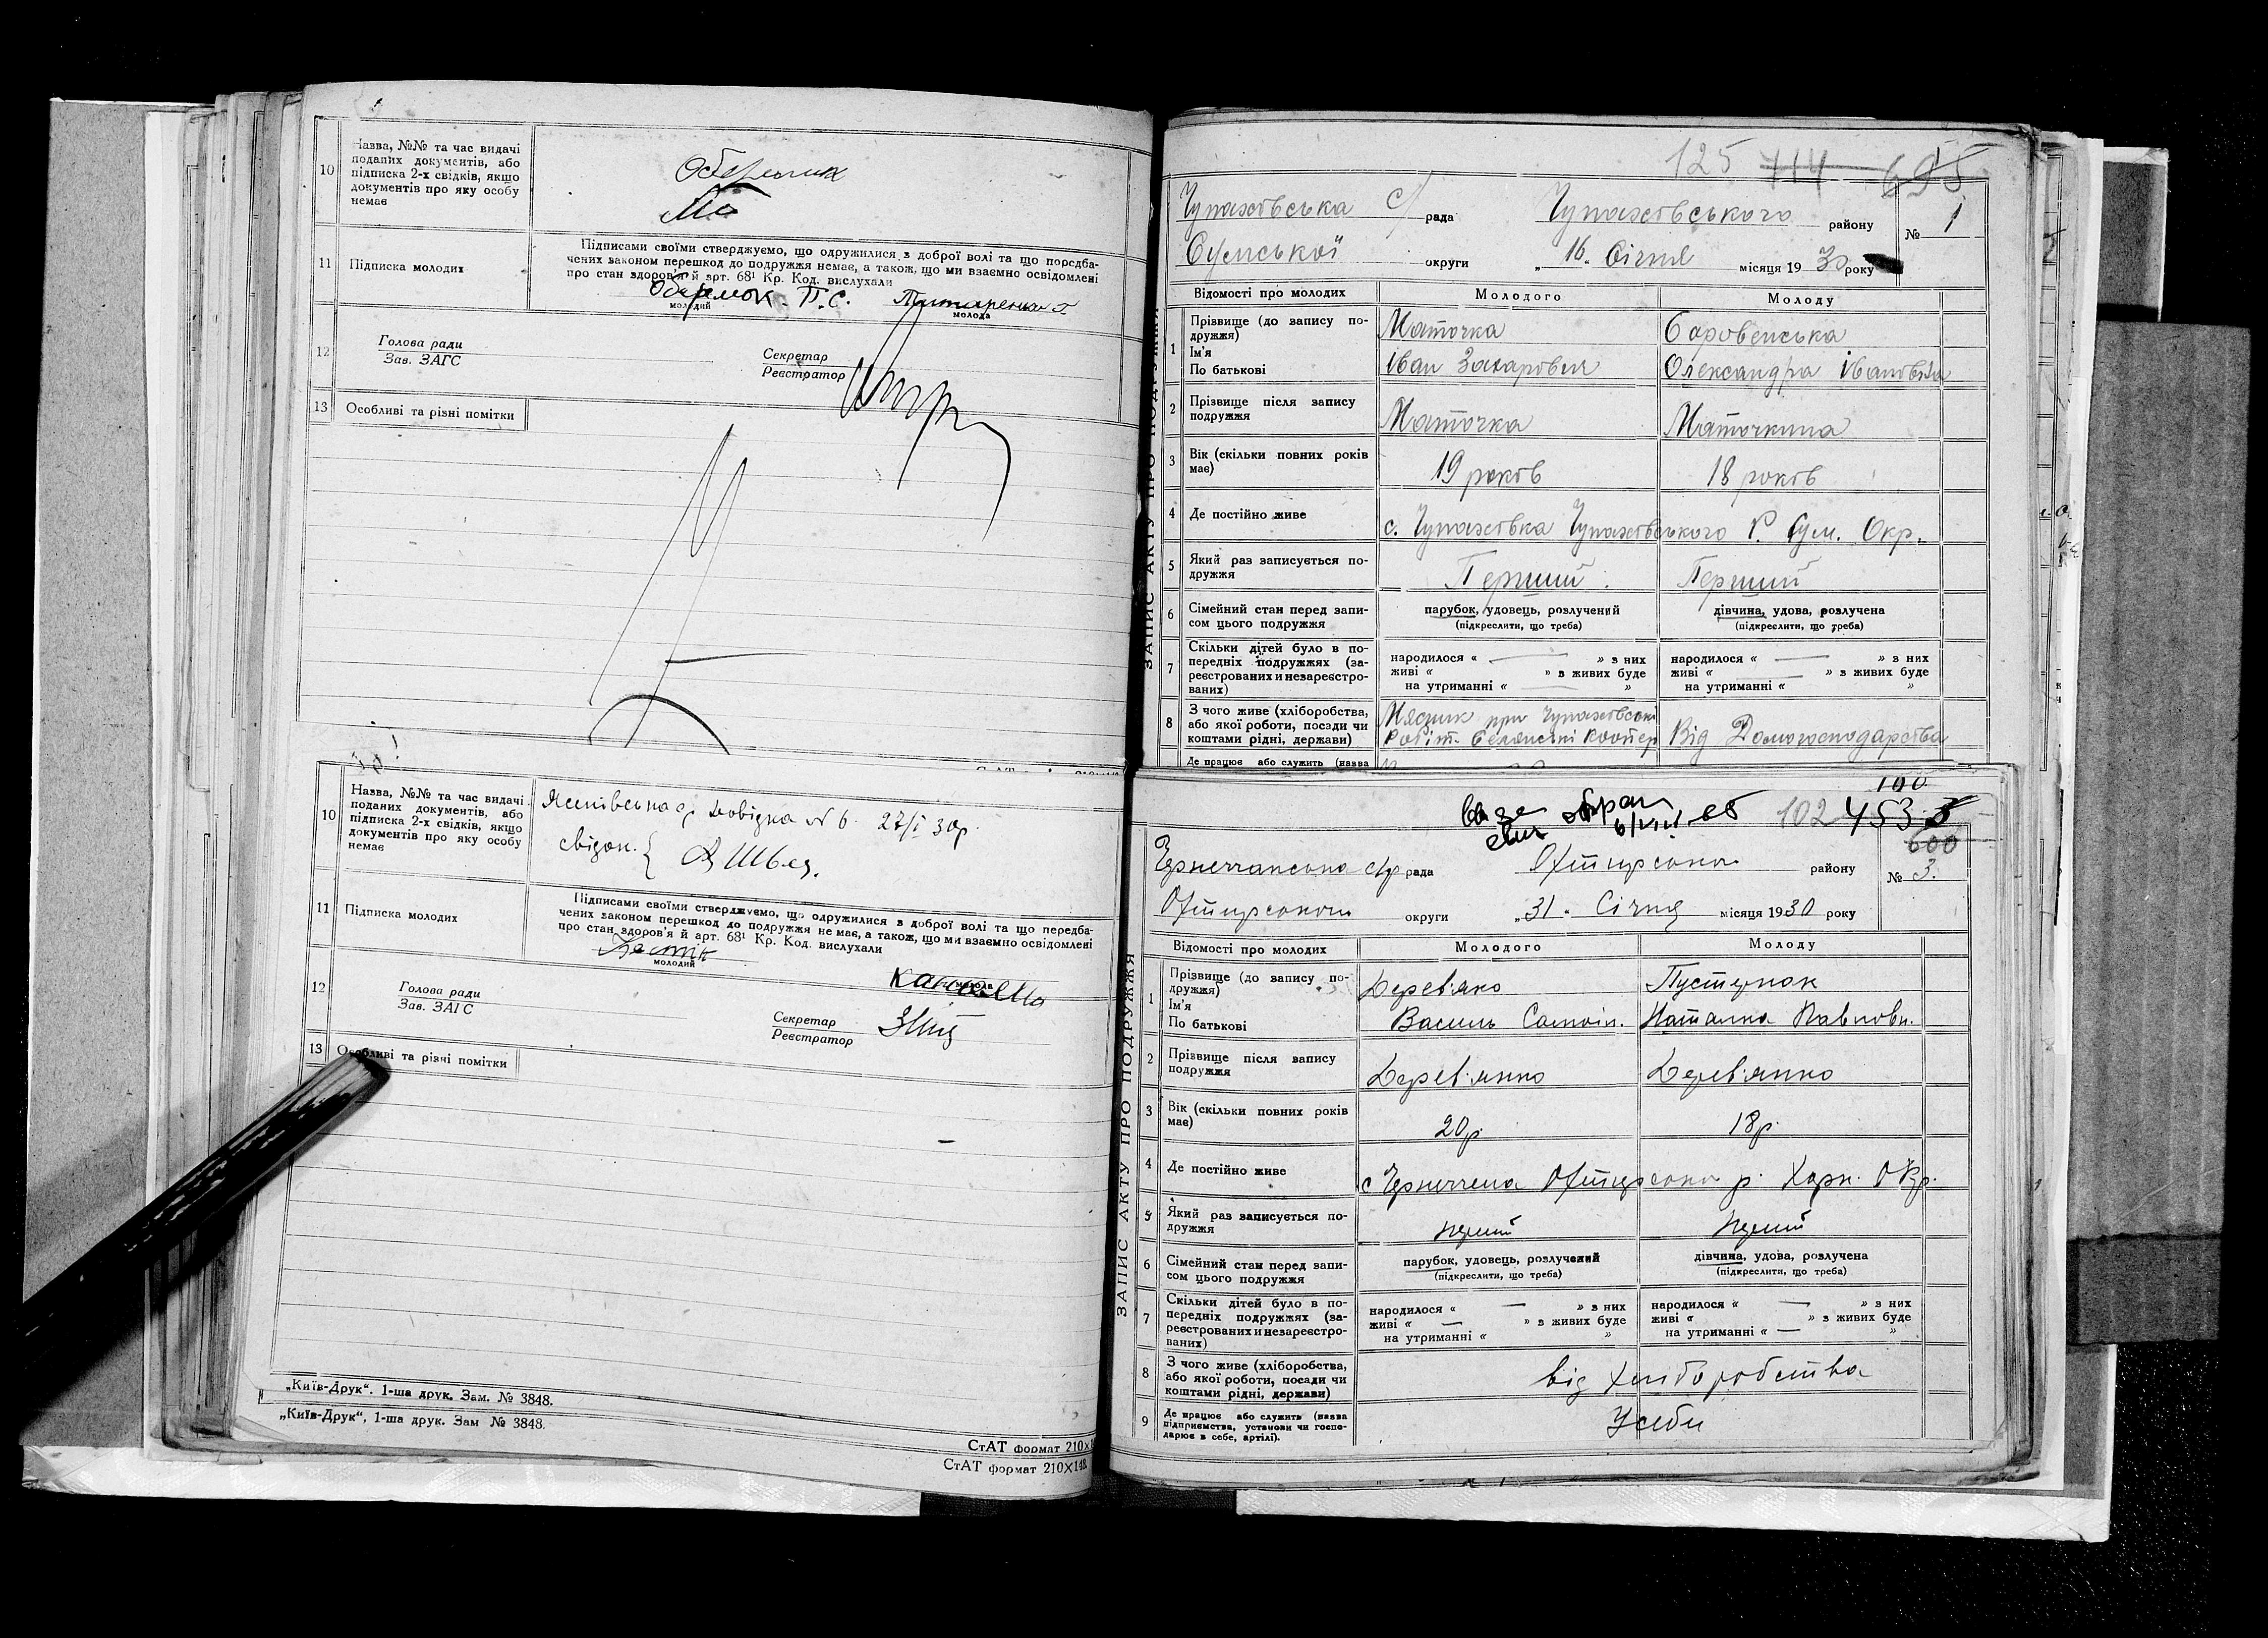 10 Назва, №№ та час видачі
поданих документів, або
підписка 2-х свідків, якщо
документів про яку особу
немає
11 Підписка молодих
Підписами своїми стверджуємо, що одружилися з доброї волі та що передба-
чених законом перешкод до подружжя немає, а також, що ми взаємно освідомлені
про стан здоров'я й арт. 68¹ Кр. Код. вислухали
П. С.
молодий молода
12 Голова ради
Зав. ЗАГС
Секретар
Реєстратор
13 Особливі та різні помітки
10 Назва, №№ та час видачі
поданих документів, або
підписка 2-х свідків, якщо
документів про яку особу
немає
Довідка № 6. 27/I 30р.
свідок. { Швец.
11 Підписка молодих
Підписами своїми стверджуємо, що одружилися з доброї волі та що передба-
чених законом перешкод до подружжя немає, а також, що ми взаємно освідомлені
про стан здоров'я й арт. 68¹ Кр. Код. вислухали
молодий молода
12 Голова ради
Зав. ЗАГС
Секретар
Реєстратор
13 Особливі та різні помітки
„Київ-Друк“. 1-ша друк. Зам. № 3848.
„Київ-Друк“, 1-ша друк. Зам № 3848.
СтАТ формат 210×1
СтАТ формат 210×148.
125 714 695
Чупахівська С/ рада Чупахівського району № 1
Сумської округи „16„ Січня місяця 1930 року
ЗАПИС АКТУ ПРО ПОДРУЖЖЯ
Відомості про молодих Молодого Молоду
1 Прізвище (до запису по-
дружжя) Маточка Боровенська
Ім'я
По батькові Іван Захарович Олександра Івановна
2 Прізвище після запису
подружжя Маточка Маточкина
3 Вік (скільки повних років
має) 19 років 18 років
4 Де постійно живе с. Чупахівка Чупахівського Р. Сум. Окр.
5 Який раз записується по-
дружжя Перший Перший
6 Сімейний стан перед запи-
сом цього подружжя
парубок, удовець, розлучений
(підкреслити, що треба)
дівчина, удова, розлучена
(підкреслити, що треба)
7 Скільки дітей було в по-
передніх подружжях (за-
реєстрованих и незареєстро-
ваних)
народилося « — » з них
живі « » в живих буде
на утриманні « — »
народилося « — » з них
живі « — » в живих буде
на утриманні « »
8 З чого живе (хліборобства,
або якої роботи, посади чи
коштами рідні, держави)
Мясник при Чупахівськ
Від Домогосподарства
Де працює або служить (назва
100
102 453
600
рада району № 3.
округи „31„ Січня місяця 1930 року
ЗАПИС АКТУ ПРО ПОДРУЖЖЯ
Відомості про молодих Молодого Молоду
1 Прізвище (до запису по-
дружжя) Дерев'яко Пустурнак
Ім'я
По батькові Василь Самоіл. Наталка Павловн.
2 Прізвище після запису
подружжя Дерев'янко Дерев'янко
3 Вік (скільки повних років
має) 20р. 18р.
4 Де постійно живе с Чернеччена Охтирсько р. Харк. Окр.
5 Який раз записується по-
дружжя перший перший
6 Сімейний стан перед запи-
сом цього подружжя
парубок, удовець, розлучений
(підкреслити, що треба)
дівчина, удова, розлучена
(підкреслити, що треба)
7 Скільки дітей було в по-
передніх подружжях (за-
реєстрованих и незареєстро-
ваних)
народилося « — » з них
живі « — » в живих буде
на утриманні « »
народилося « — » з них
живі « » в живих буде
на утриманні « — »
8 З чого живе (хліборобства,
або якої роботи, посади чи
коштами рідні, держави)
від хліборобства
9 Де працює або служить (назва
підприємства, установи чи госпо-
дарює в себе, артілі).
У себи